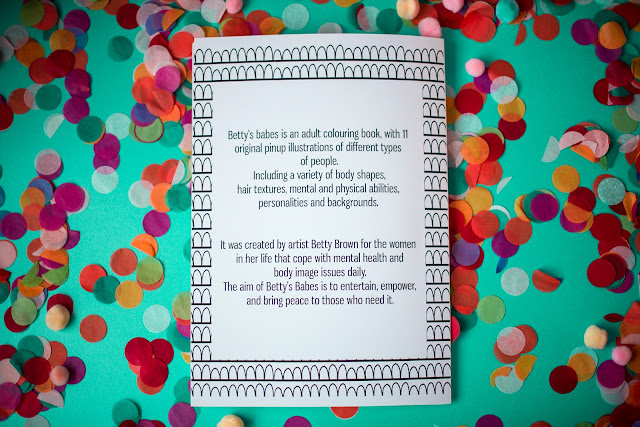 Betty's babes is an adult colouring book, with 11
original pinup illustrations of different types
of people.
Including a variety of body shapes,
hair textures, mental and physical abilities,
personalities and backgrounds.
It was created by artist Betty Brown for the women
in her life that cope with mental health and
body image issues daily.
The aim of Betty's Babes is to entertain, empower,
and bring peace to those who need it.